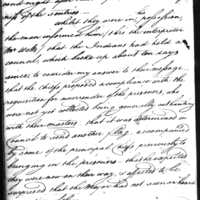 of the sentries
whilst they were in possession,
the man informed him (thro the interpreter
Mr Wells) that the Indians had held a
council, which broke up about ten days
since to consider my answer to the message
that the chiefs proposed a compliance with the
requisition for surrender of the prisoners, who
were not yet being generally out hunting
with their masters. that it was determined in
council to send another flag accompanied
by some of the principal chiefs previously to
bringing in the prisoners — that he expected
they were now on their way, & affected to be
surprised that the Major had not seen or heard